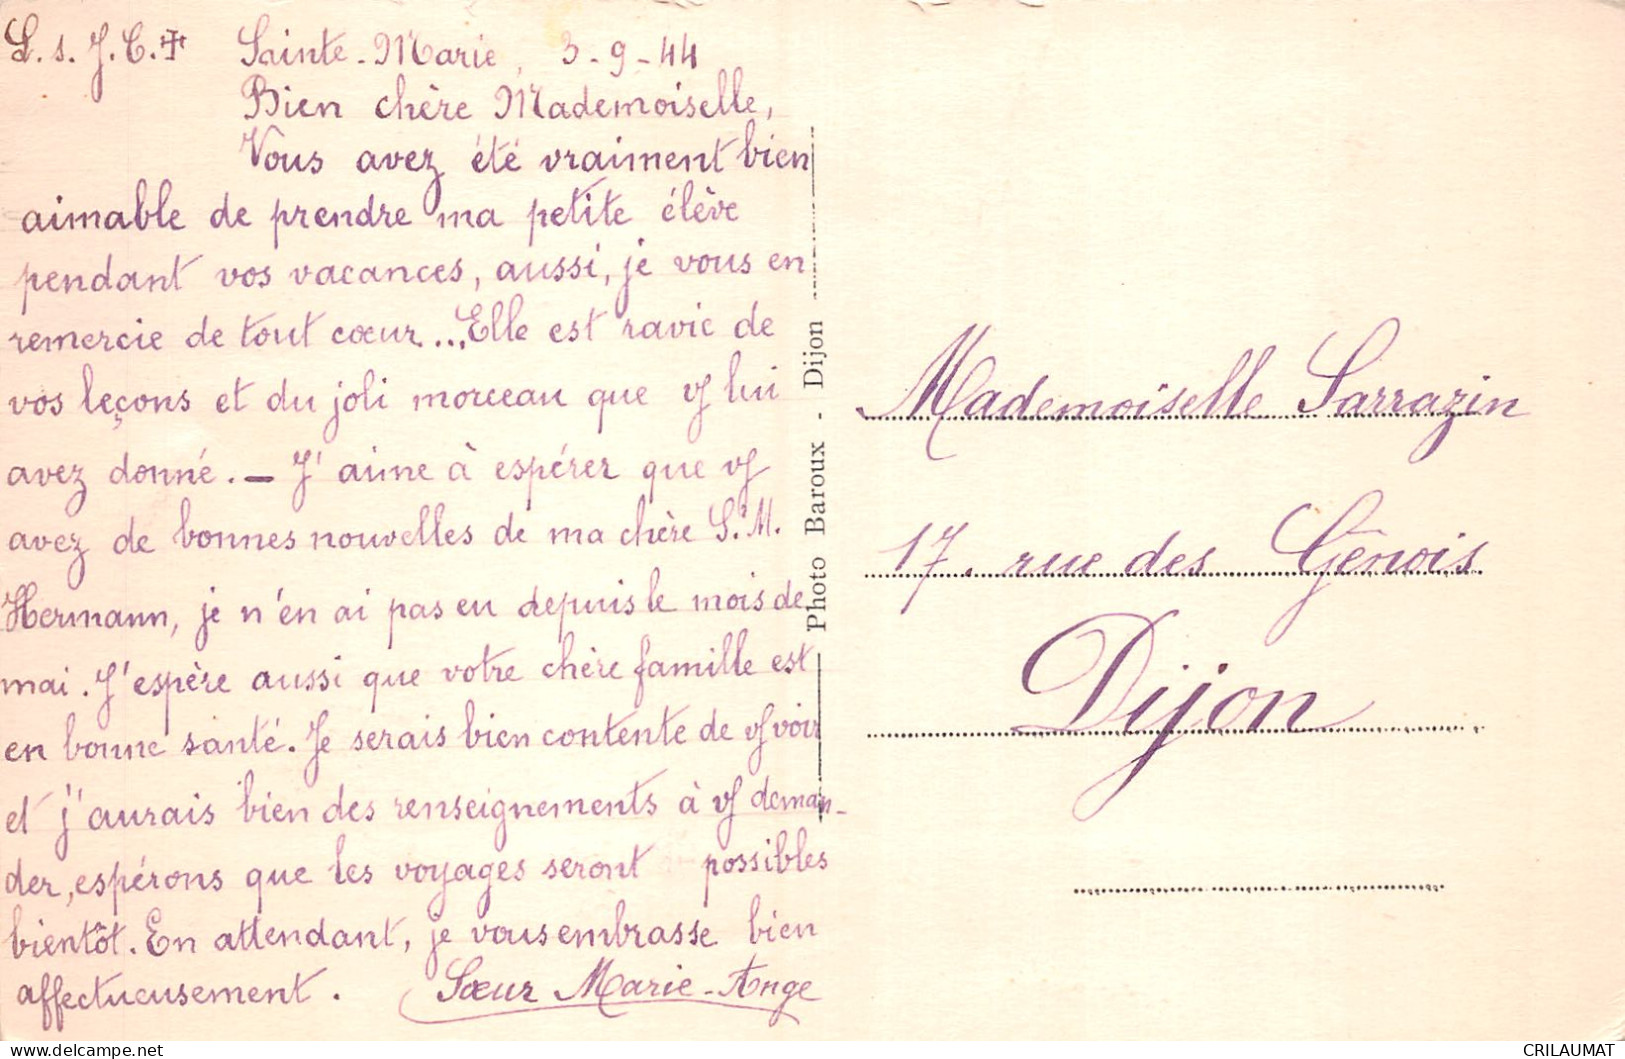 L. s. J. C. ✝ Sainte-Marie, 3-9-44
Bien chère Mademoiselle,
Vous avez été vraiment bien
aimable de prendre ma petite élève
pendant vos vacances, aussi, je vous en
remercie de tout cœur... Elle est ravie de
vos leçons et du joli morceau que vs lui
avez donné. — J'aime à espérer que vs
avez de bonnes nouvelles de ma chère S. M.
Hermann, je n'en ai pas eu depuis le mois de
mai. J'espère aussi que votre chère famille est
en bonne santé. Je serais bien contente de vs voir
et j'aurais bien des renseignements à vs deman-
der, espérons que les voyages seront possibles
bientôt. En attendant, je vous embrasse bien
affectueusement. Sœur Marie-Ange
Photo Baroux - Dijon
Mademoiselle Sarrazin
17, rue des Gênois
Dijon
CRILAUMAT